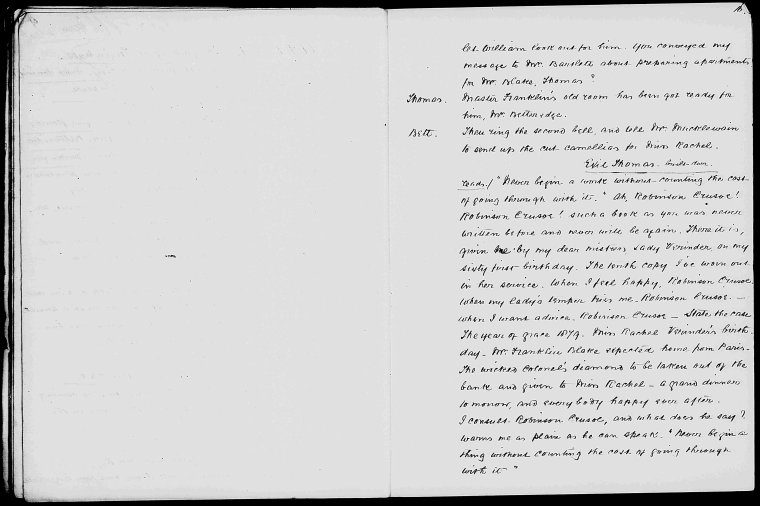 let William look out for him. You conveyed my
message to Mr. Bartlett about preparing apartments
for Mr. Blake, Thomas?
Thomas. Master Franklin's old room has been got ready for
him, Mr. Betteredge.
Bett. Then ring the second bell, and tell Mr. Mucklewain
to send up the cut camellias for Miss Rachel.
Exit Thomas
reads / "Never begin a work without counting the cost
of going through with it." Ah, Robinson Crusoe!
Robinson Crusoe! such a book as you was never
written before and never will be again. There it is,
given me by my dear mistress Lady Verinder on my
sixty first birthday. The tenth copy I've worn out
in her service. When I feel happy, Robinson Crusoe.
When my lady's temper tries me Robinson Crusoe. —
When I want advice. Robinson Crusoe — State the case
The year of grace 1879. Miss Rachel Verinder's birth-
day — Mr. Franklin Blake expected home from Paris —
The wicked Colonel's diamond to be taken out of the
bank and given to Miss Rachel — a grand dinner
tomorrow, and everybody happy ever after.
I consult Robinson Crusoe, and what does he say?
Warns me as plain as he can speak. "Never begin a
thing without counting the cost of going through
with it"